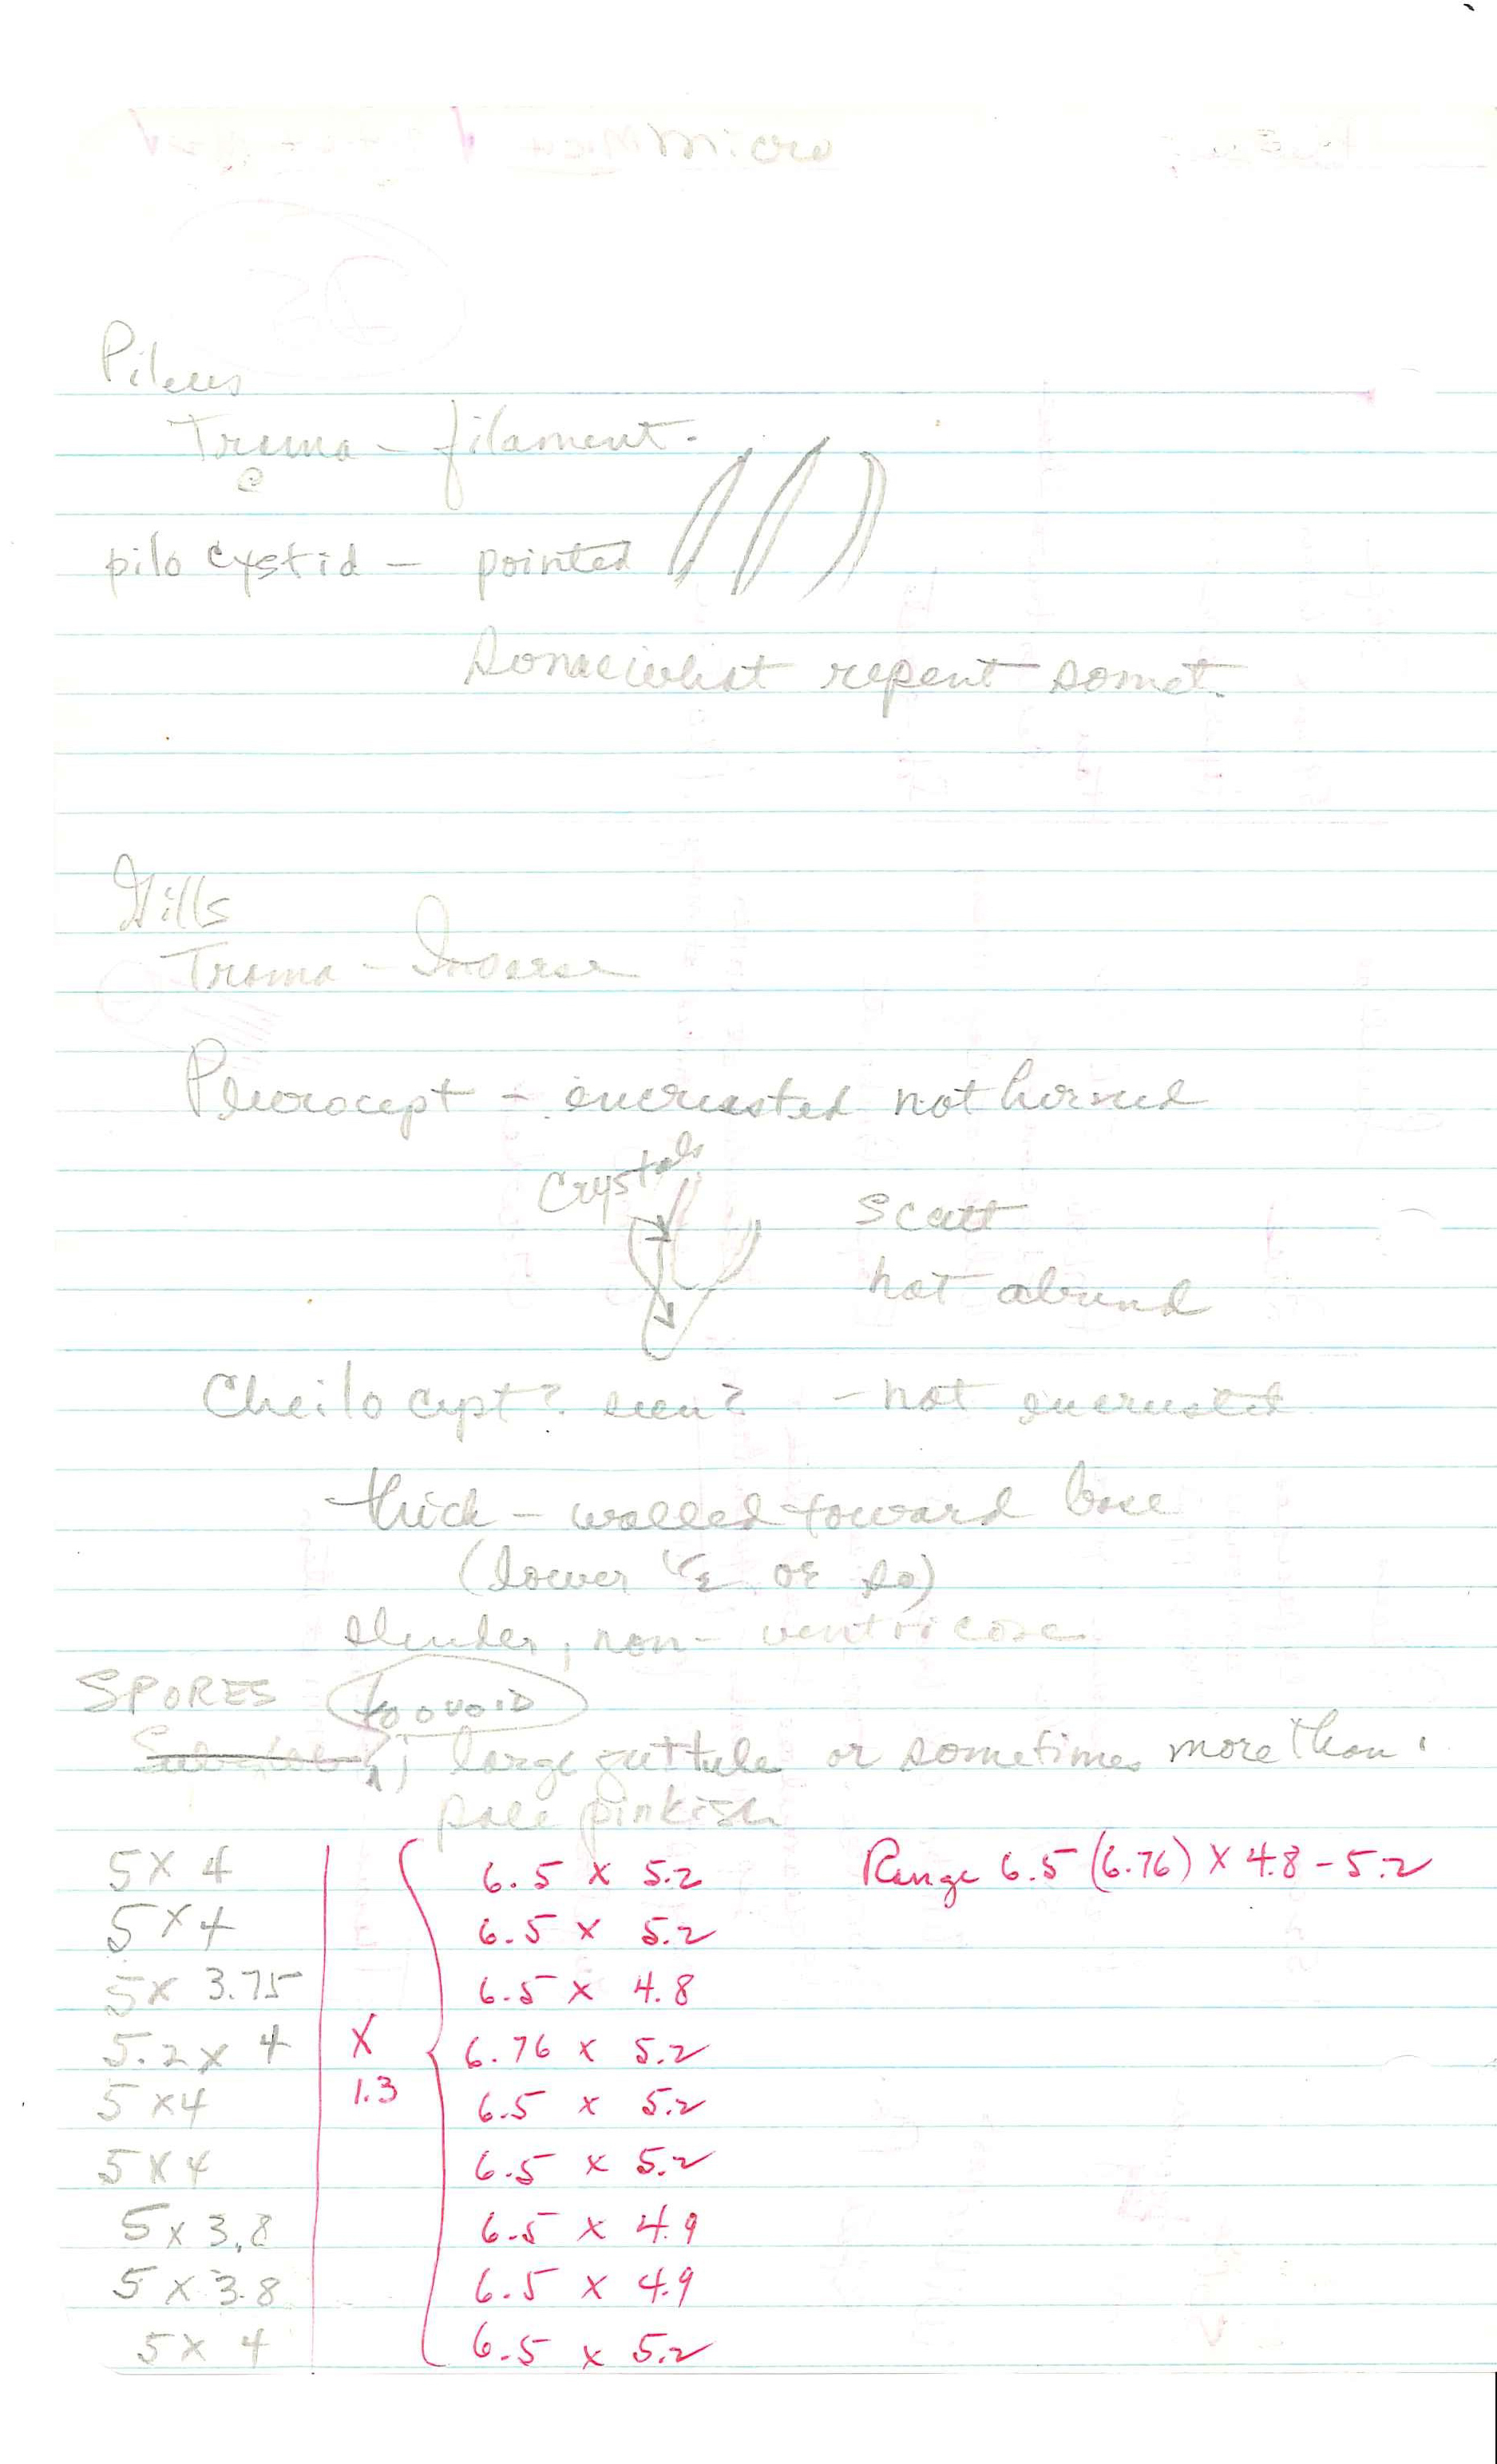 micro
Pileus
Trama - filament.
pilo cystid - pointed
somewhat repent somet.
Gills
Trama - Inverse
Pleurocyst - encrusted not horned
crystals
scatt
not abund
Cheilo cyst? seen? - not encrusted
thick - walled toward base
(lower 1/2 or so)
slender, non- ventricose
SPORES to ovoid
Subglob; large guttule or sometimes more than 1
pale pinkish
5 x 4 6.5 x 5.2 Range 6.5 (6.76) x 4.8 - 5.2
5 x 4 6.5 x 5.2
5 x 3.75 6.5 x 4.8
5.2 x 4 x 6.76 x 5.2
5 x 4 1.3 6.5 x 5.2
5 x 4 6.5 x 5.2
5 x 3.8 6.5 x 4.9
5 x 3.8 6.5 x 4.9
5 x 4 6.5 x 5.2